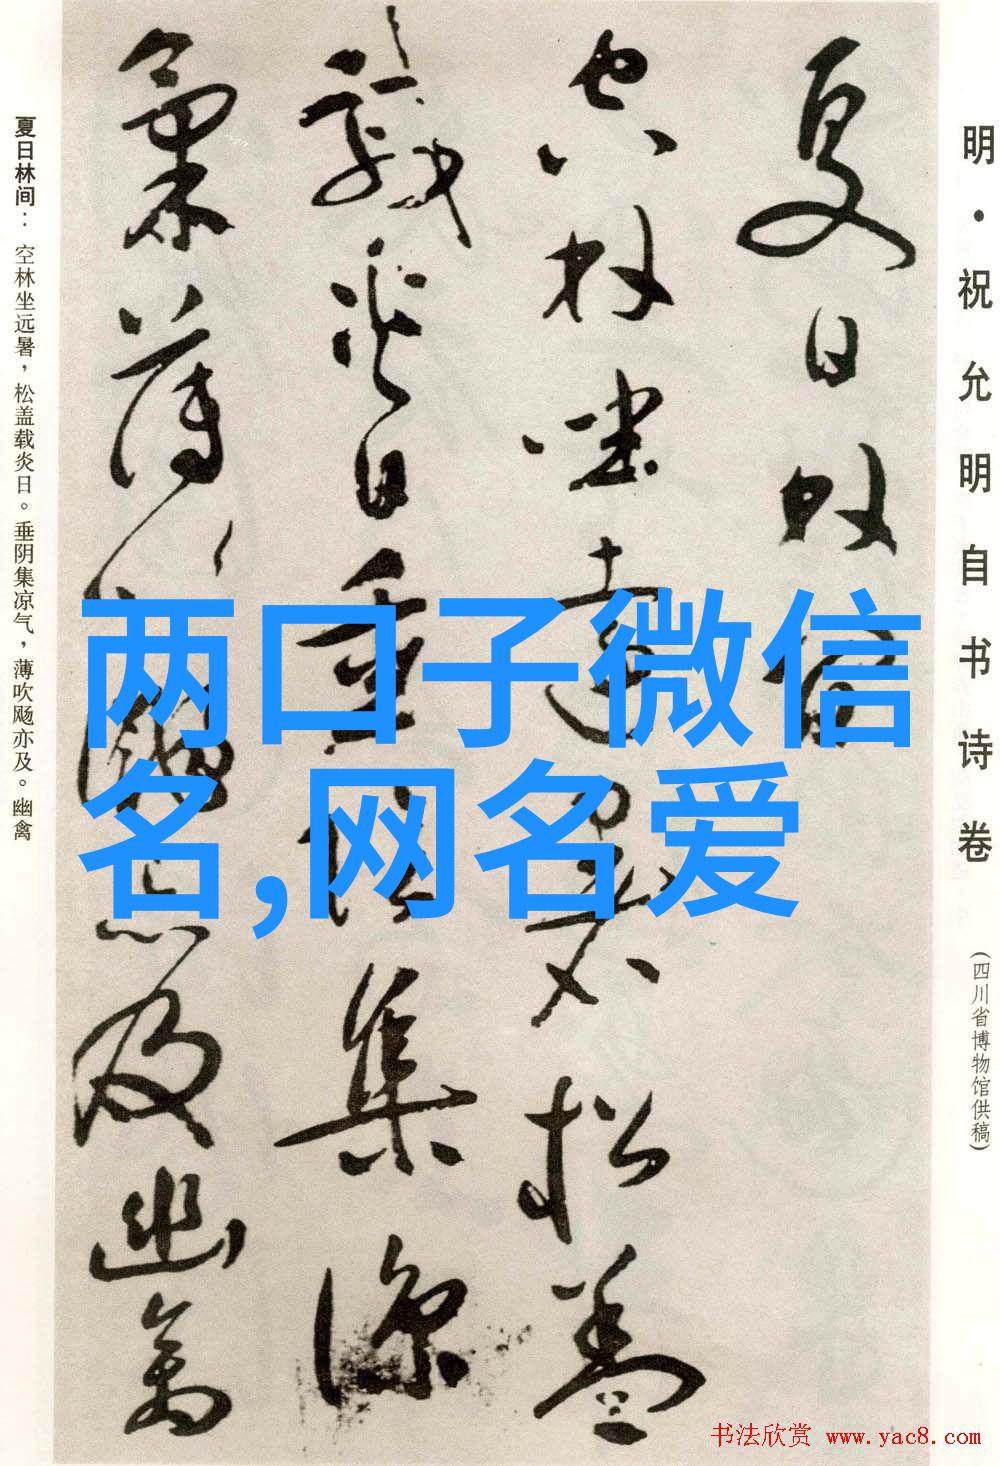 明·祝允明自书诗卷
(四川省博物馆供稿)
夏日林间
空林坐远暑松盖
载炎日垂阴集凉
气薄吹飏亦及幽禽
夏日林间：空林坐远暑，松盖载炎日。垂阴集凉气，薄吹飏亦及。幽禽
两口子微信
名,网名爱
书法欣赏 www.yac8.com